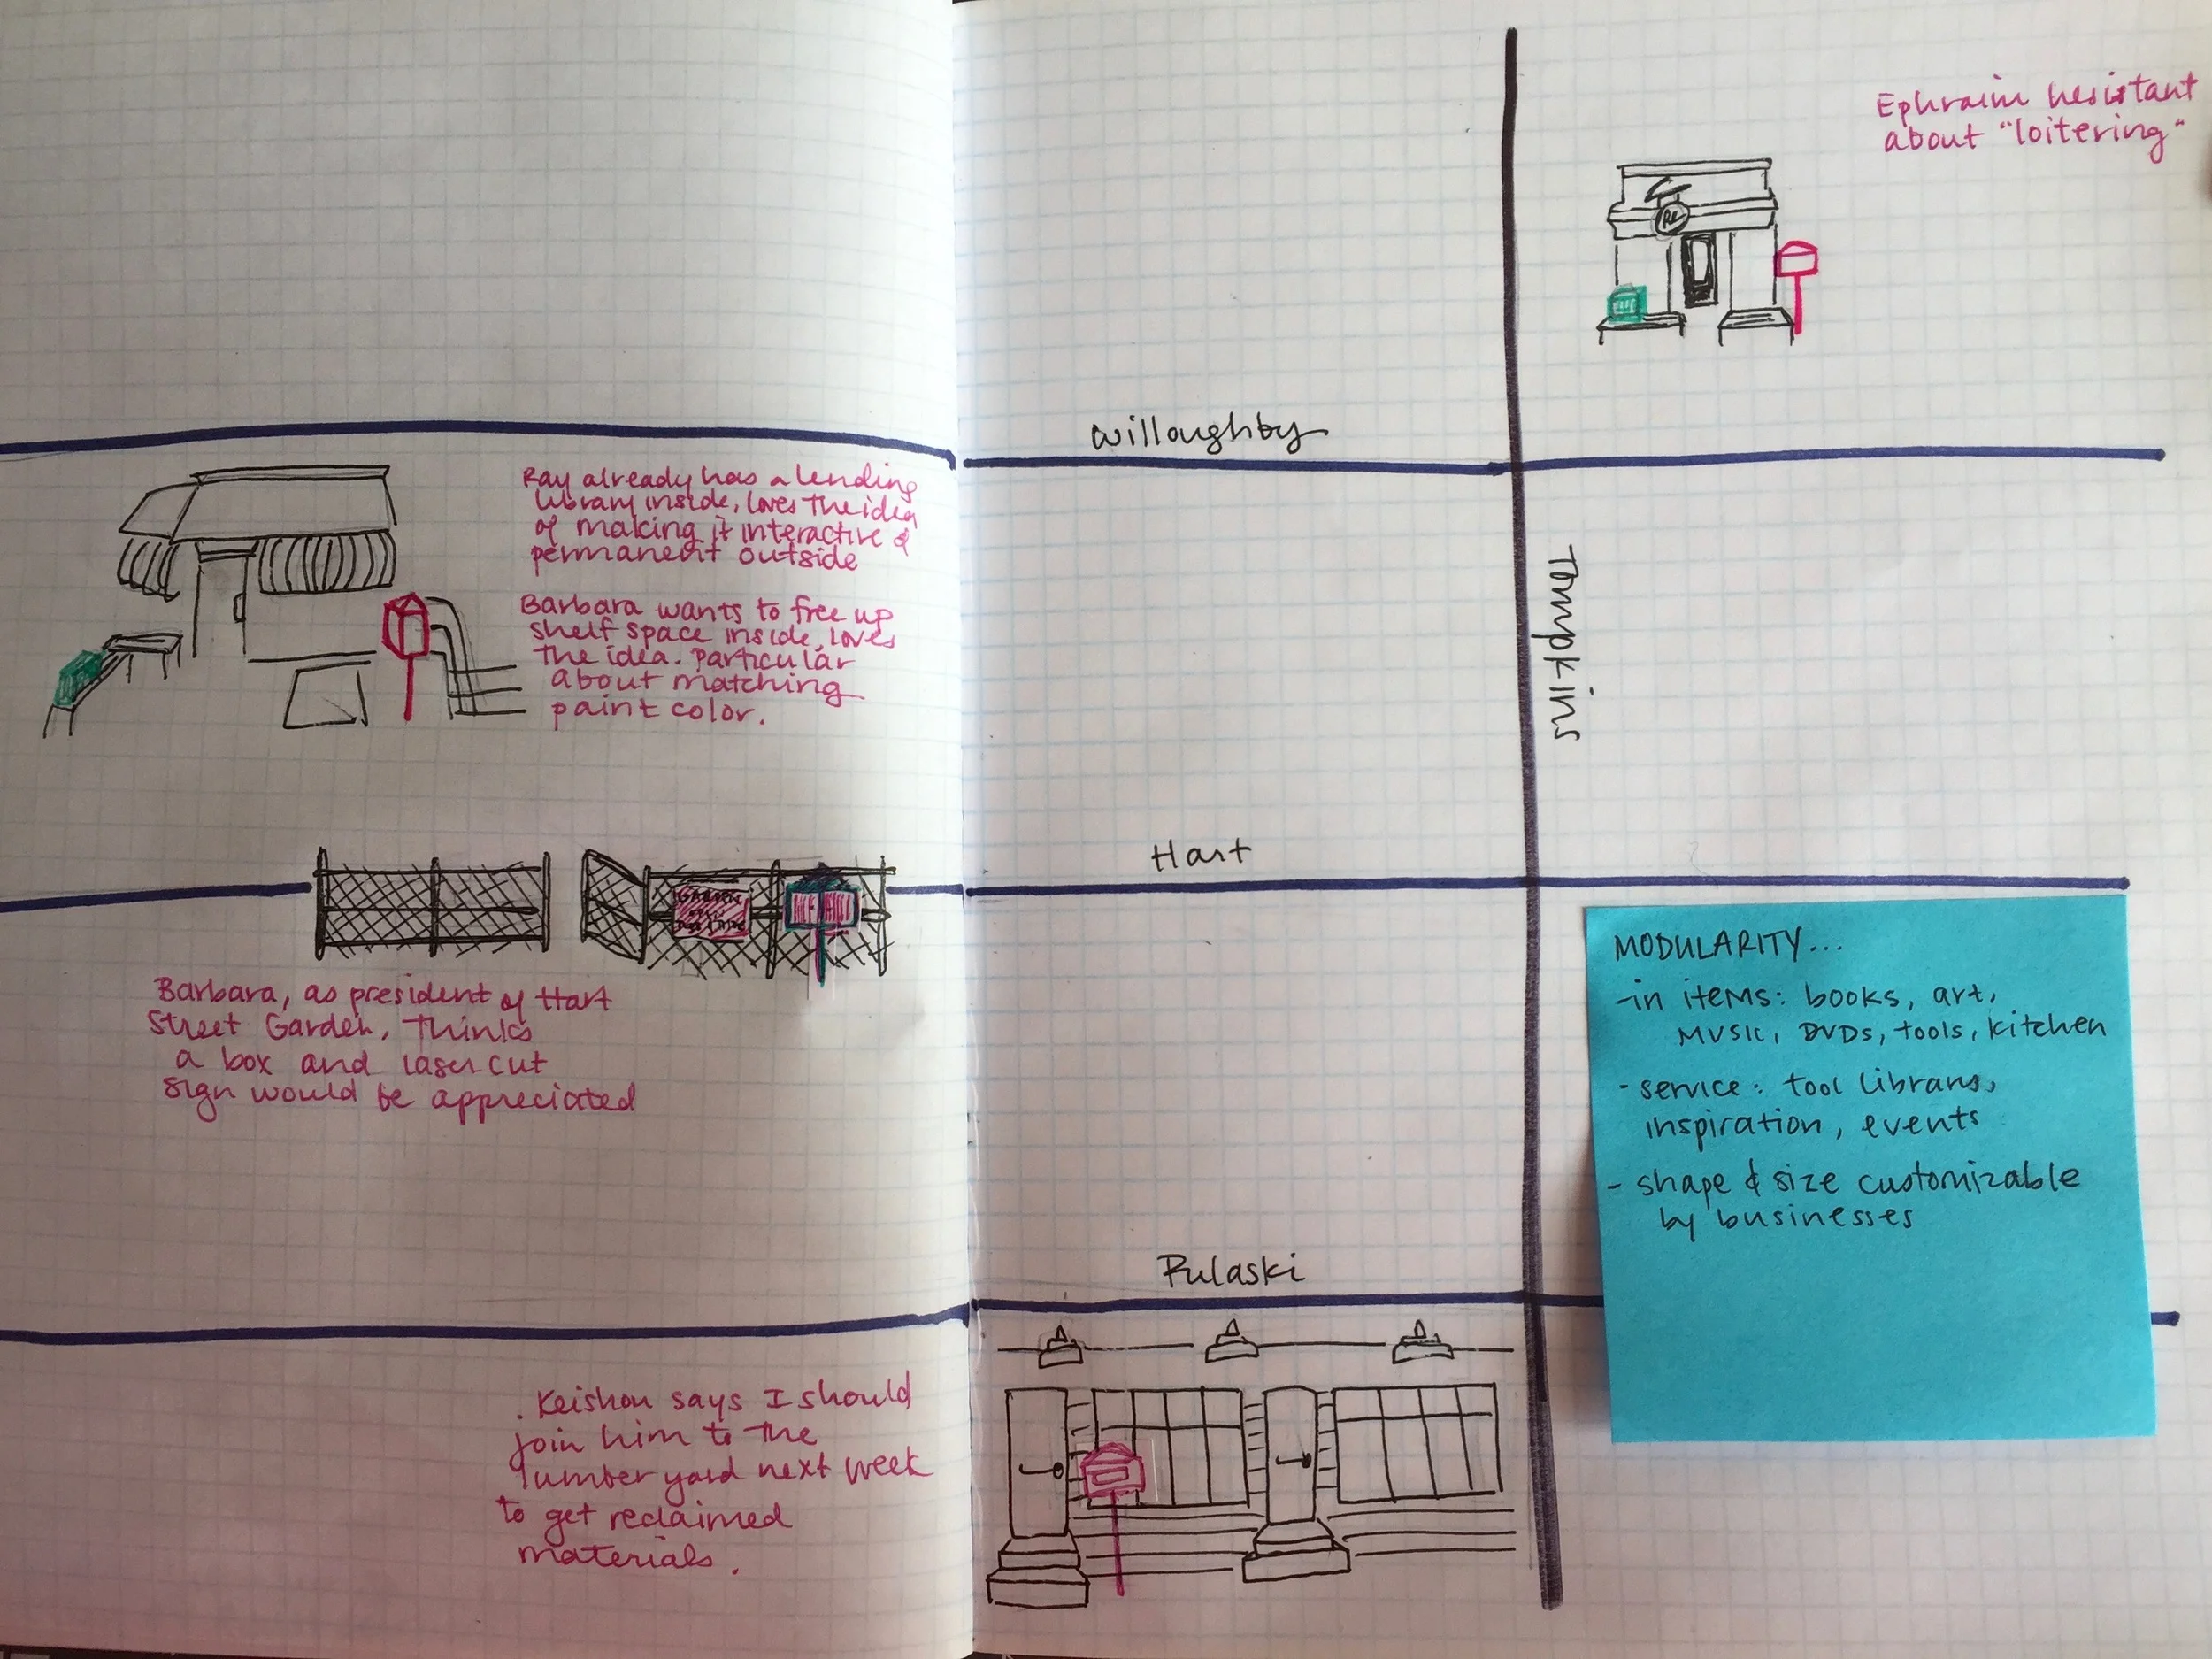 Ephraim hesistant
about "loitering"
RL
Willoughby
Ray already has a lending
library inside, loves the idea
of making it interactive &
permanent outside
Barbara wants to free up
shelf space inside, loves
the idea. particular
about matching
paint color.
Tompkins
Hart
GARDEN
Barbara, as president of Hart
Street Garden, thinks
a box and laser cut
sign would be appreciated
MODULARITY...
-in items: books, art,
MUSIC, DVDs, tools, kitchen
- service: tool library,
inspiration, events
- shape & size customizable
by businesses
Pulaski
. Keishon says I should
join him to the
lumber yard next week
to get reclaimed
materials.